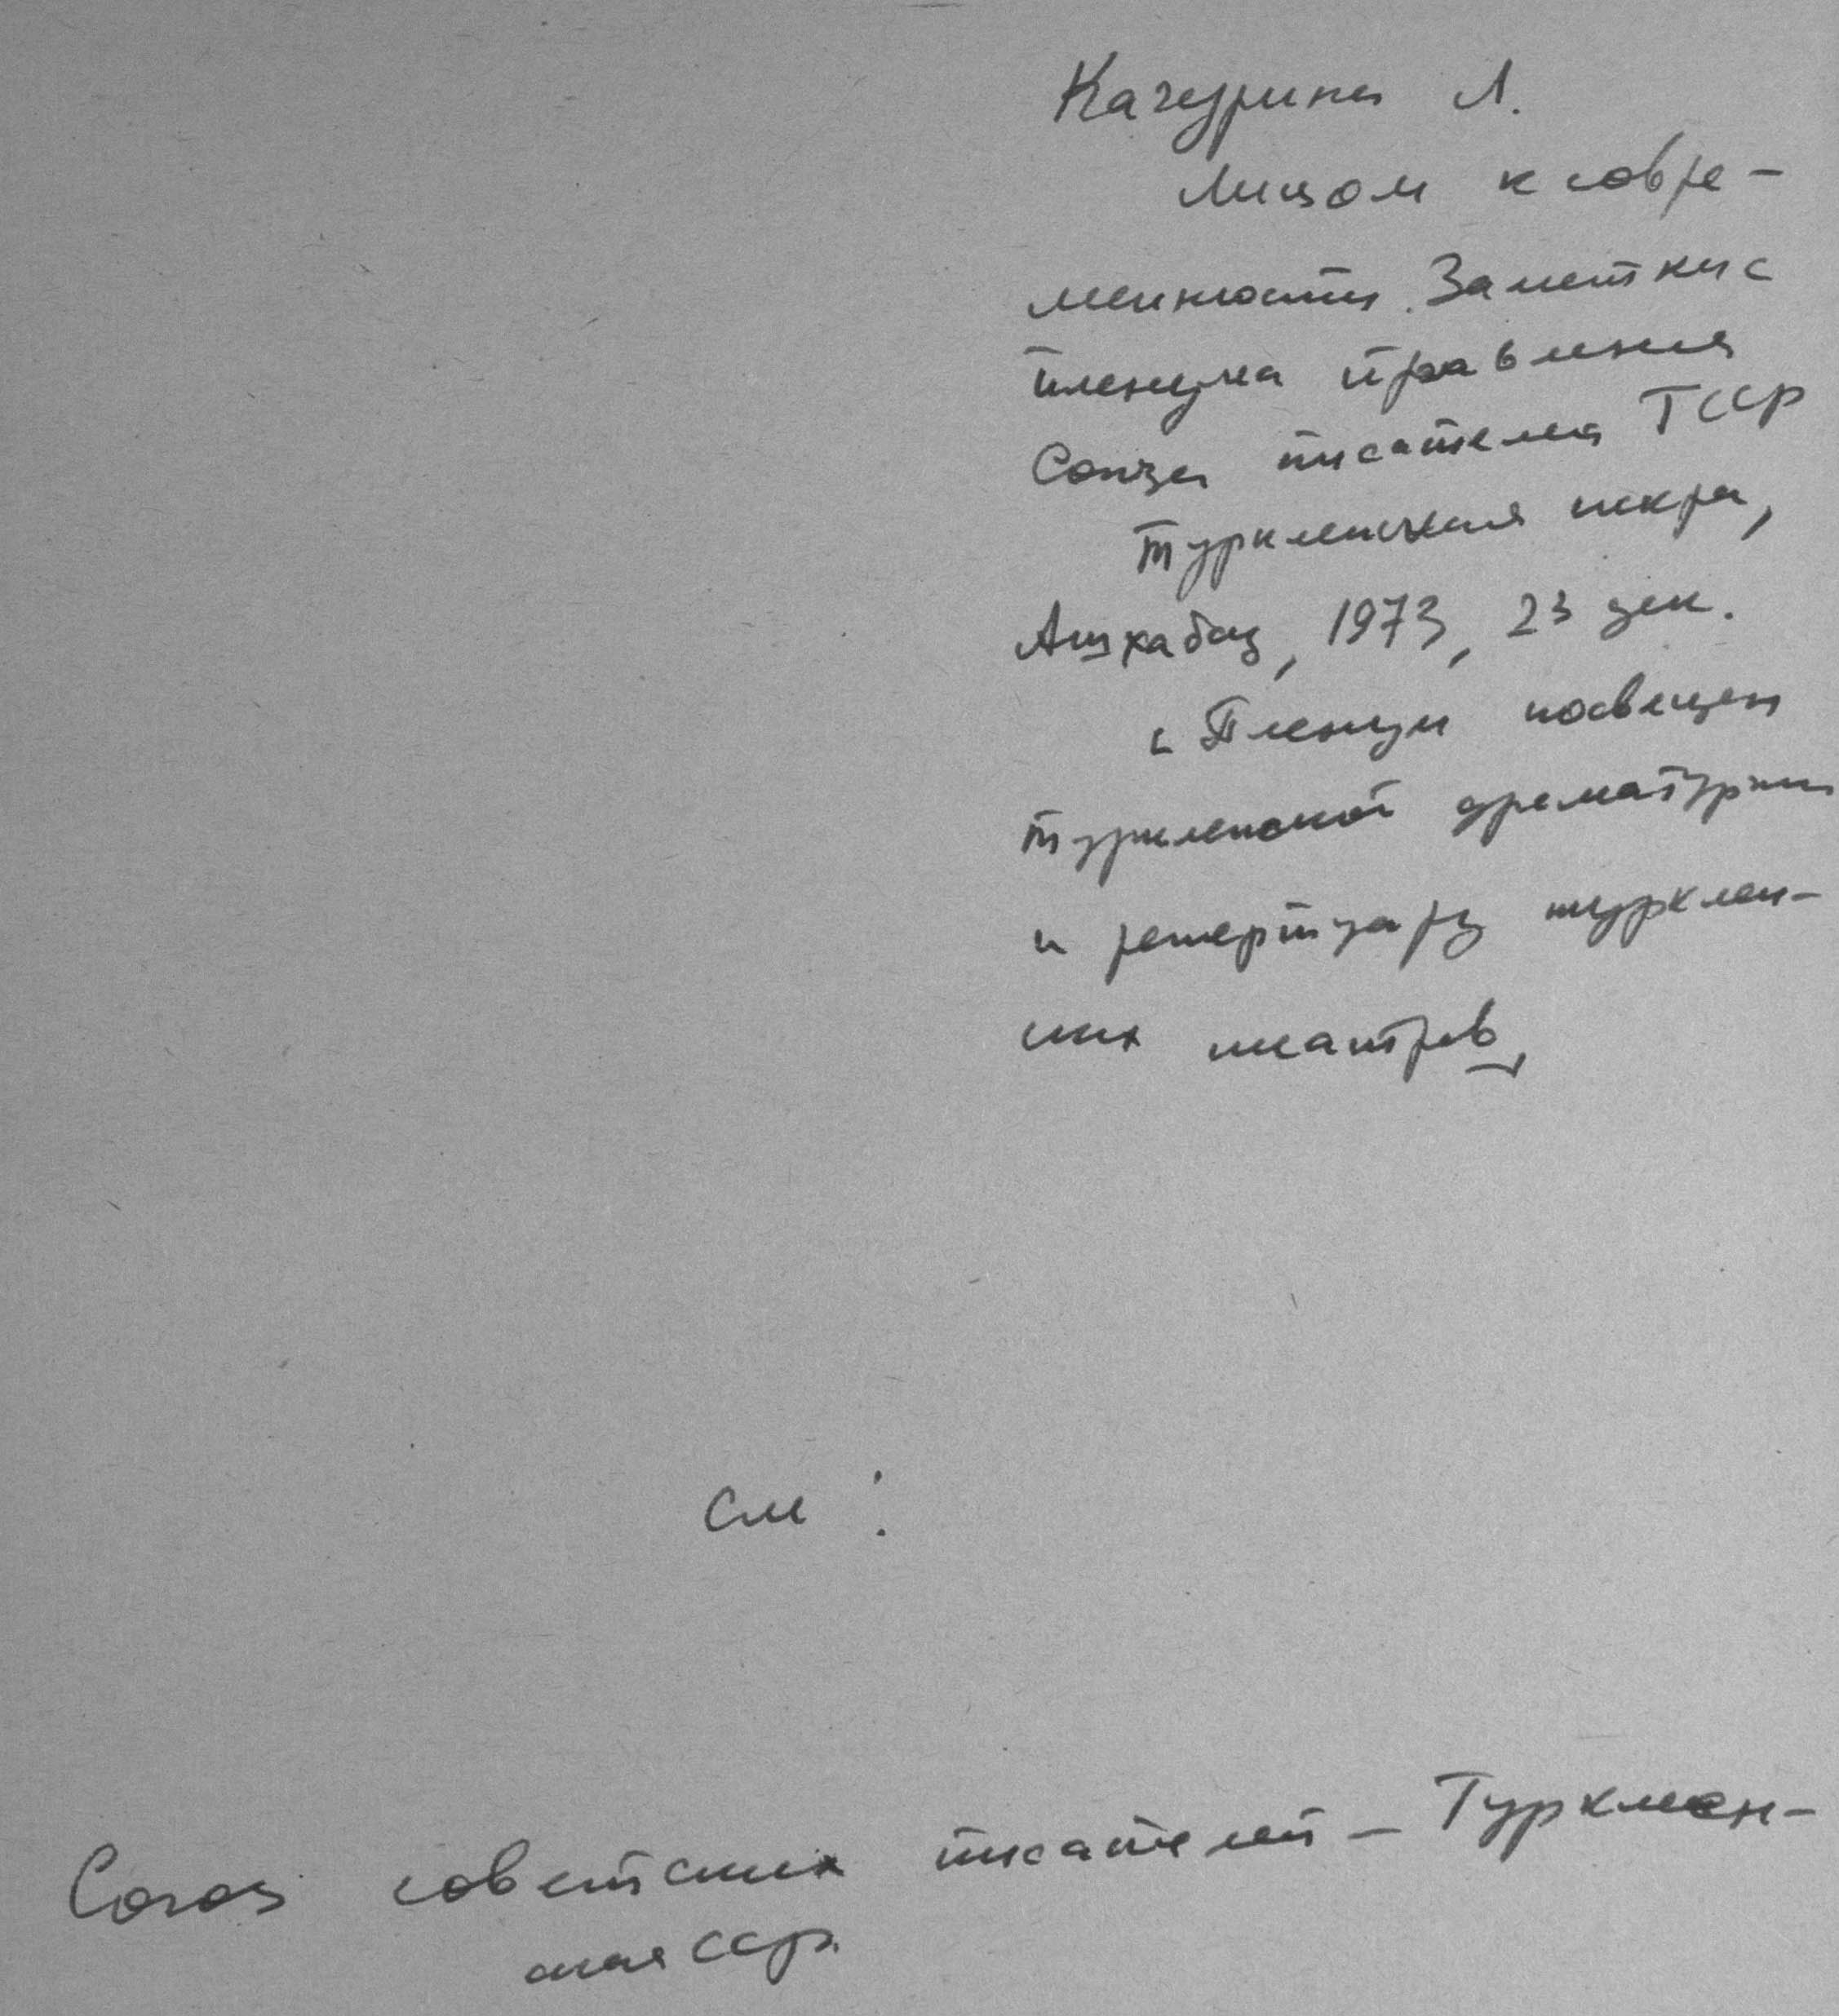 Качурина Л.
Лицом к совре-
менности. Заметки с
пленума правления
Союза писателей ТССР
Туркменская искра,
Ашхабад, 1973, 23 дек.
[Пленум посвящен
туркменской драматургии
и репертуару туркмен-
ских театров]
См:
Союз советских писателей - Туркмен-
ская ССР.